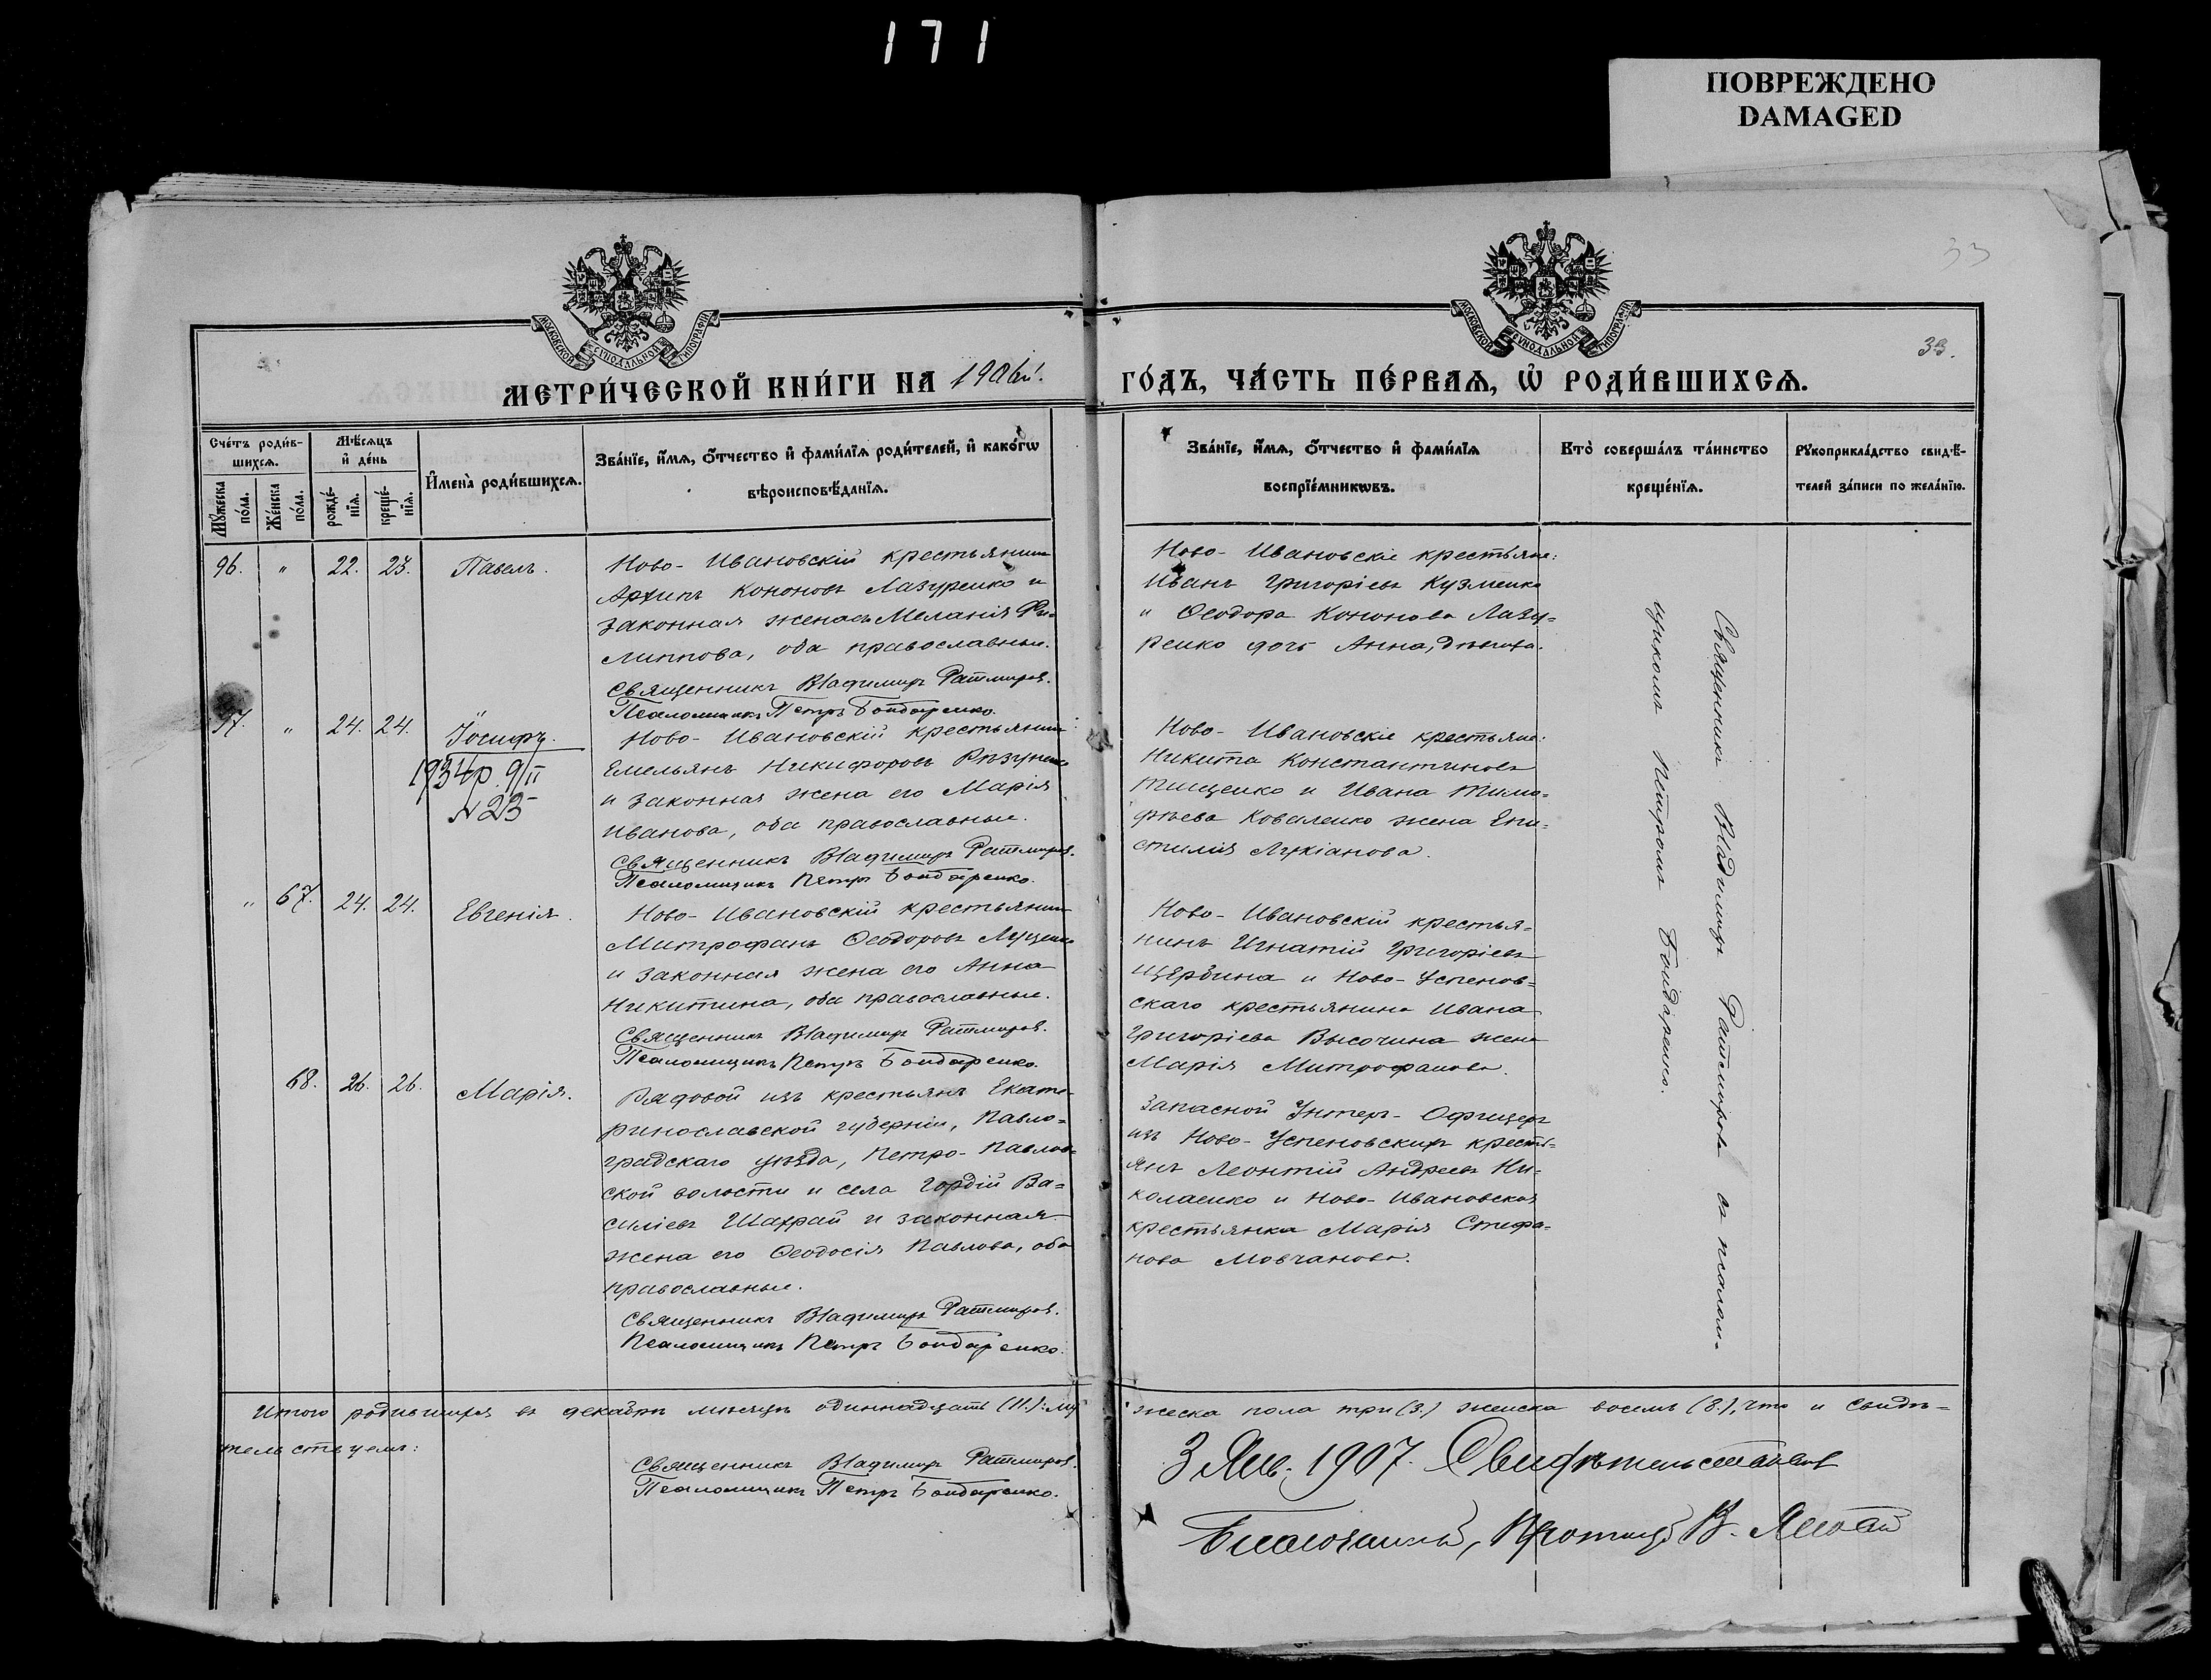 171
ПОВРЕЖДЕНО
DAMAGED
МОСКОВСКОЙ СѴНОДАЛЬНОЙ ТИПОГРАФІИ
МОСКОВСКОЙ СѴНОДАЛЬНОЙ ТИПОГРАФІИ
33
33.
МЕТРИ́ЧЕСКОЙ КНИ́ГИ НА 1906й. ГО́ДЪ, ЧА́СТЬ ПЕ́РВАѦ, Ѡ҆ РОДИ́ВШИХСѦ.
Сче́тъ роди́в-
шихсѧ.
Мꙋ́жеска по́ла.
Же́нска по́ла.
Мѣ́сѧцъ
и҆ де́нь
рожде́-
нїѧ.
креще́-
нїѧ.
И҆мена̀ роди́вшихсѧ.
Зва́нїе, и҆́мѧ, ѻ҆́тчество и҆ фами́лїѧ роди́телей, и҆ како́гѡ
вѣроисповѣ́данїѧ.
Зва́нїе, и҆́мѧ, ѻ҆́тчество и҆ фами́лїѧ
воспрїе́мникѡвъ.
Кто̀ соверша́лъ та́инство
креще́нїѧ.
Рꙋкоприкла́дство свидѣ́-
телей за́писи по жела́нїю.
96. " 22. 23. Павелъ.
Ново-Ивановскій крестьянинъ
Архипъ Кононовъ Лазуренко и
законная жена его Меланія Фи-
липпова, оба православные.
Священникъ Владимиръ Ратмиров.
Псаломщикъ Петръ Бондаренко.
Ново-Ивановскіе крестьяне:
Иванъ Григоріевъ Кузменко
и Ѳеодора Кононова Лазу-
ренко дочь Анна, дѣвица.
97. " 24. 24. Іосифъ.
1934р. 9/II
N 23
Ново-Ивановскій крестьянинъ
Емельянъ Никифоровъ Рѣзуненко
и законная жена его Марія
Иванова, оба православные.
Священникъ Владимиръ Ратмиров.
Псаломщикъ Петръ Бондаренко.
Ново-Ивановскіе крестьяне:
Никита Константиновъ
Тищенко и Ивана Тимо-
фѣева Коваленко жена Епи-
стилія Лукіанова.
" 67. 24. 24. Евгенія.
Ново-Ивановскій крестьянинъ
Митрофанъ Ѳеодоровъ Луценко
и законная жена его Анна
Никитина, оба православные.
Священникъ Владимиръ Ратмиров.
Псаломщикъ Петръ Бондаренко.
Ново-Ивановскій крестья-
нинъ Игнатій Григоріевъ
Щербина и Ново-Успенов-
скаго крестьянина Ивана
Григоріева Высочина жена
Марія Митрофанова.
68. 26. 26. Марія.
Рядовой изъ крестьянъ Екате-
ринославской губерніи, Павло-
градскаго уѣзда, Петро-Павлов-
ской волости и села Гордій Ва-
силіевъ Шахрай и законная
жена его Ѳеодосія Павлова, оба
православные.
Священникъ Владимиръ Ратмиров.
Псаломщикъ Петръ Бондаренко.
Запасной Унтеръ-Офицеръ
изъ Ново-Успеновскихъ кресть-
янъ Леонтій Андреевъ Ни-
колаенко и Ново-Ивановская
крестьянка Марія Стефа-
нова Мовчанова.
Священникъ Владимиръ Ратмировъ съ псалом-
щикомъ Петромъ Бондаренко.
Итого родившихся въ декабрѣ мѣсяцѣ одиннадцать (11.): му-
жеска пола три (3.) женска восемь (8.), что и свидѣ-
тельствуемъ:
Священникъ Владимиръ Ратмиров.
Псаломщикъ Петръ Бондаренко.
3 Янв. 1907. Свидѣтельствовалъ
Благочинный, В.